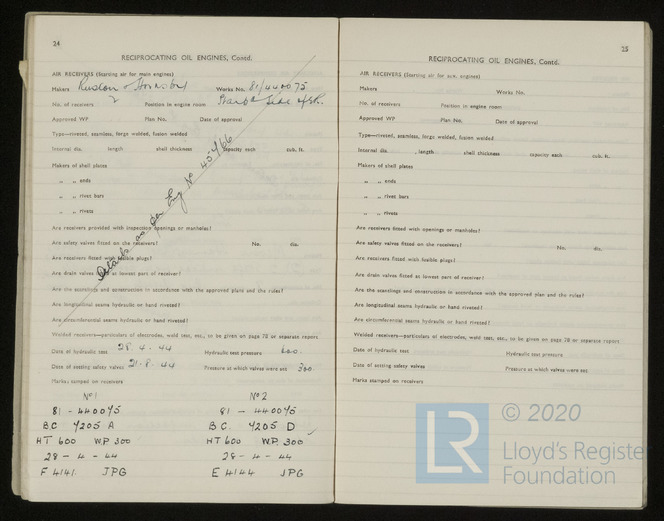 24
RECIPROCATING OIL ENGINES, Contd.
AIR RECEIVERS (Starting air for main engines)
Makers Ruston & Hornsby Works No. 81/440075
No. of receivers 2 Position in engine room Side
Approved WP Plan No. Date of approval
Type—riveted, seamless, forge welded, fusion welded
Internal dia. length shell thickness capacity each cub. ft.
Makers of shell plates
„ „ ends
„ „ rivet bars
„ „ rivets
Details as per Eng No
Are receivers provided with inspection openings or manholes?
Are safety valves fitted on the receivers? No. dia.
Are receivers fitted with fusible plugs?
Are drain valves at lowest part of receiver?
Are the scantlings and construction in accordance with the approved plans and the rules?
Are longitudinal seams hydraulic or hand riveted?
Are circumferential seams hydraulic or hand riveted?
Welded receivers—particulars of electrodes, weld test, etc., to be given on page 78 or separate report
Date of hydraulic test 28.4.44 Hydraulic test pressure 600.
Date of setting safety valves 21.8.44 Pressure at which valves were set 300.
Marks stamped on receivers
No 1 No 2
81 - 440075 81 - 440075
BC 7205 A BC. 7205 D
HT 600 WP 300 HT 600 WP. 300
28 - 4 - 44 28 - 4 - 44
F 4141. JPG E 4144 JPG
25
RECIPROCATING OIL ENGINES, Contd.
AIR RECEIVERS (Starting air for aux. engines)
Makers Works No.
No. of receivers Position in engine room
Approved WP Plan No. Date of approval
Type—riveted, seamless, forge welded, fusion welded
Internal dia. length shell thickness capacity each cub. ft.
Makers of shell plates
„ „ ends
„ „ rivet bars
„ „ rivets
Are receivers fitted with openings or manholes?
Are safety valves fitted on the receivers? No. dia.
Are receivers fitted with fusible plugs?
Are drain valves fitted at lowest part of receiver?
Are the scantlings and construction in accordance with the approved plan and the rules?
Are longitudinal seams hydraulic or hand riveted?
Are circumferential seams hydraulic or hand riveted?
Welded receivers—particulars of electrodes, weld test, etc., to be given on page 78 or separate report
Date of hydraulic test Hydraulic test pressure
Date of setting safety valves Pressure at which valves were set
Marks stamped on receivers
LR © 2020
Lloyd's Register
Foundation